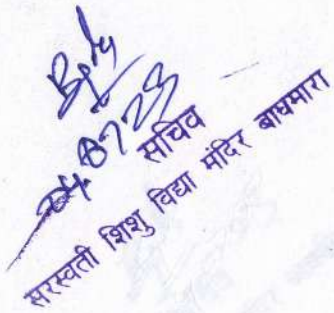 04.07.23
सचिव
सरस्वती शिशु विद्या मंदिर बाघमारा